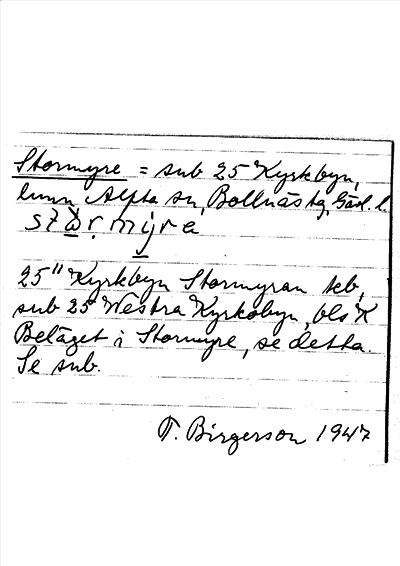 Stormyre = sub 25 Kyrkbyn,
Alfta sn, Bollnäs tg, Gävl. l.
25" Kyrkbyn Stormyran teb,
sub 25 Westra Kyrkobyn, bls K
Beläget i Stormyre, se detta.
Se sub.
T. Birgerson 1947